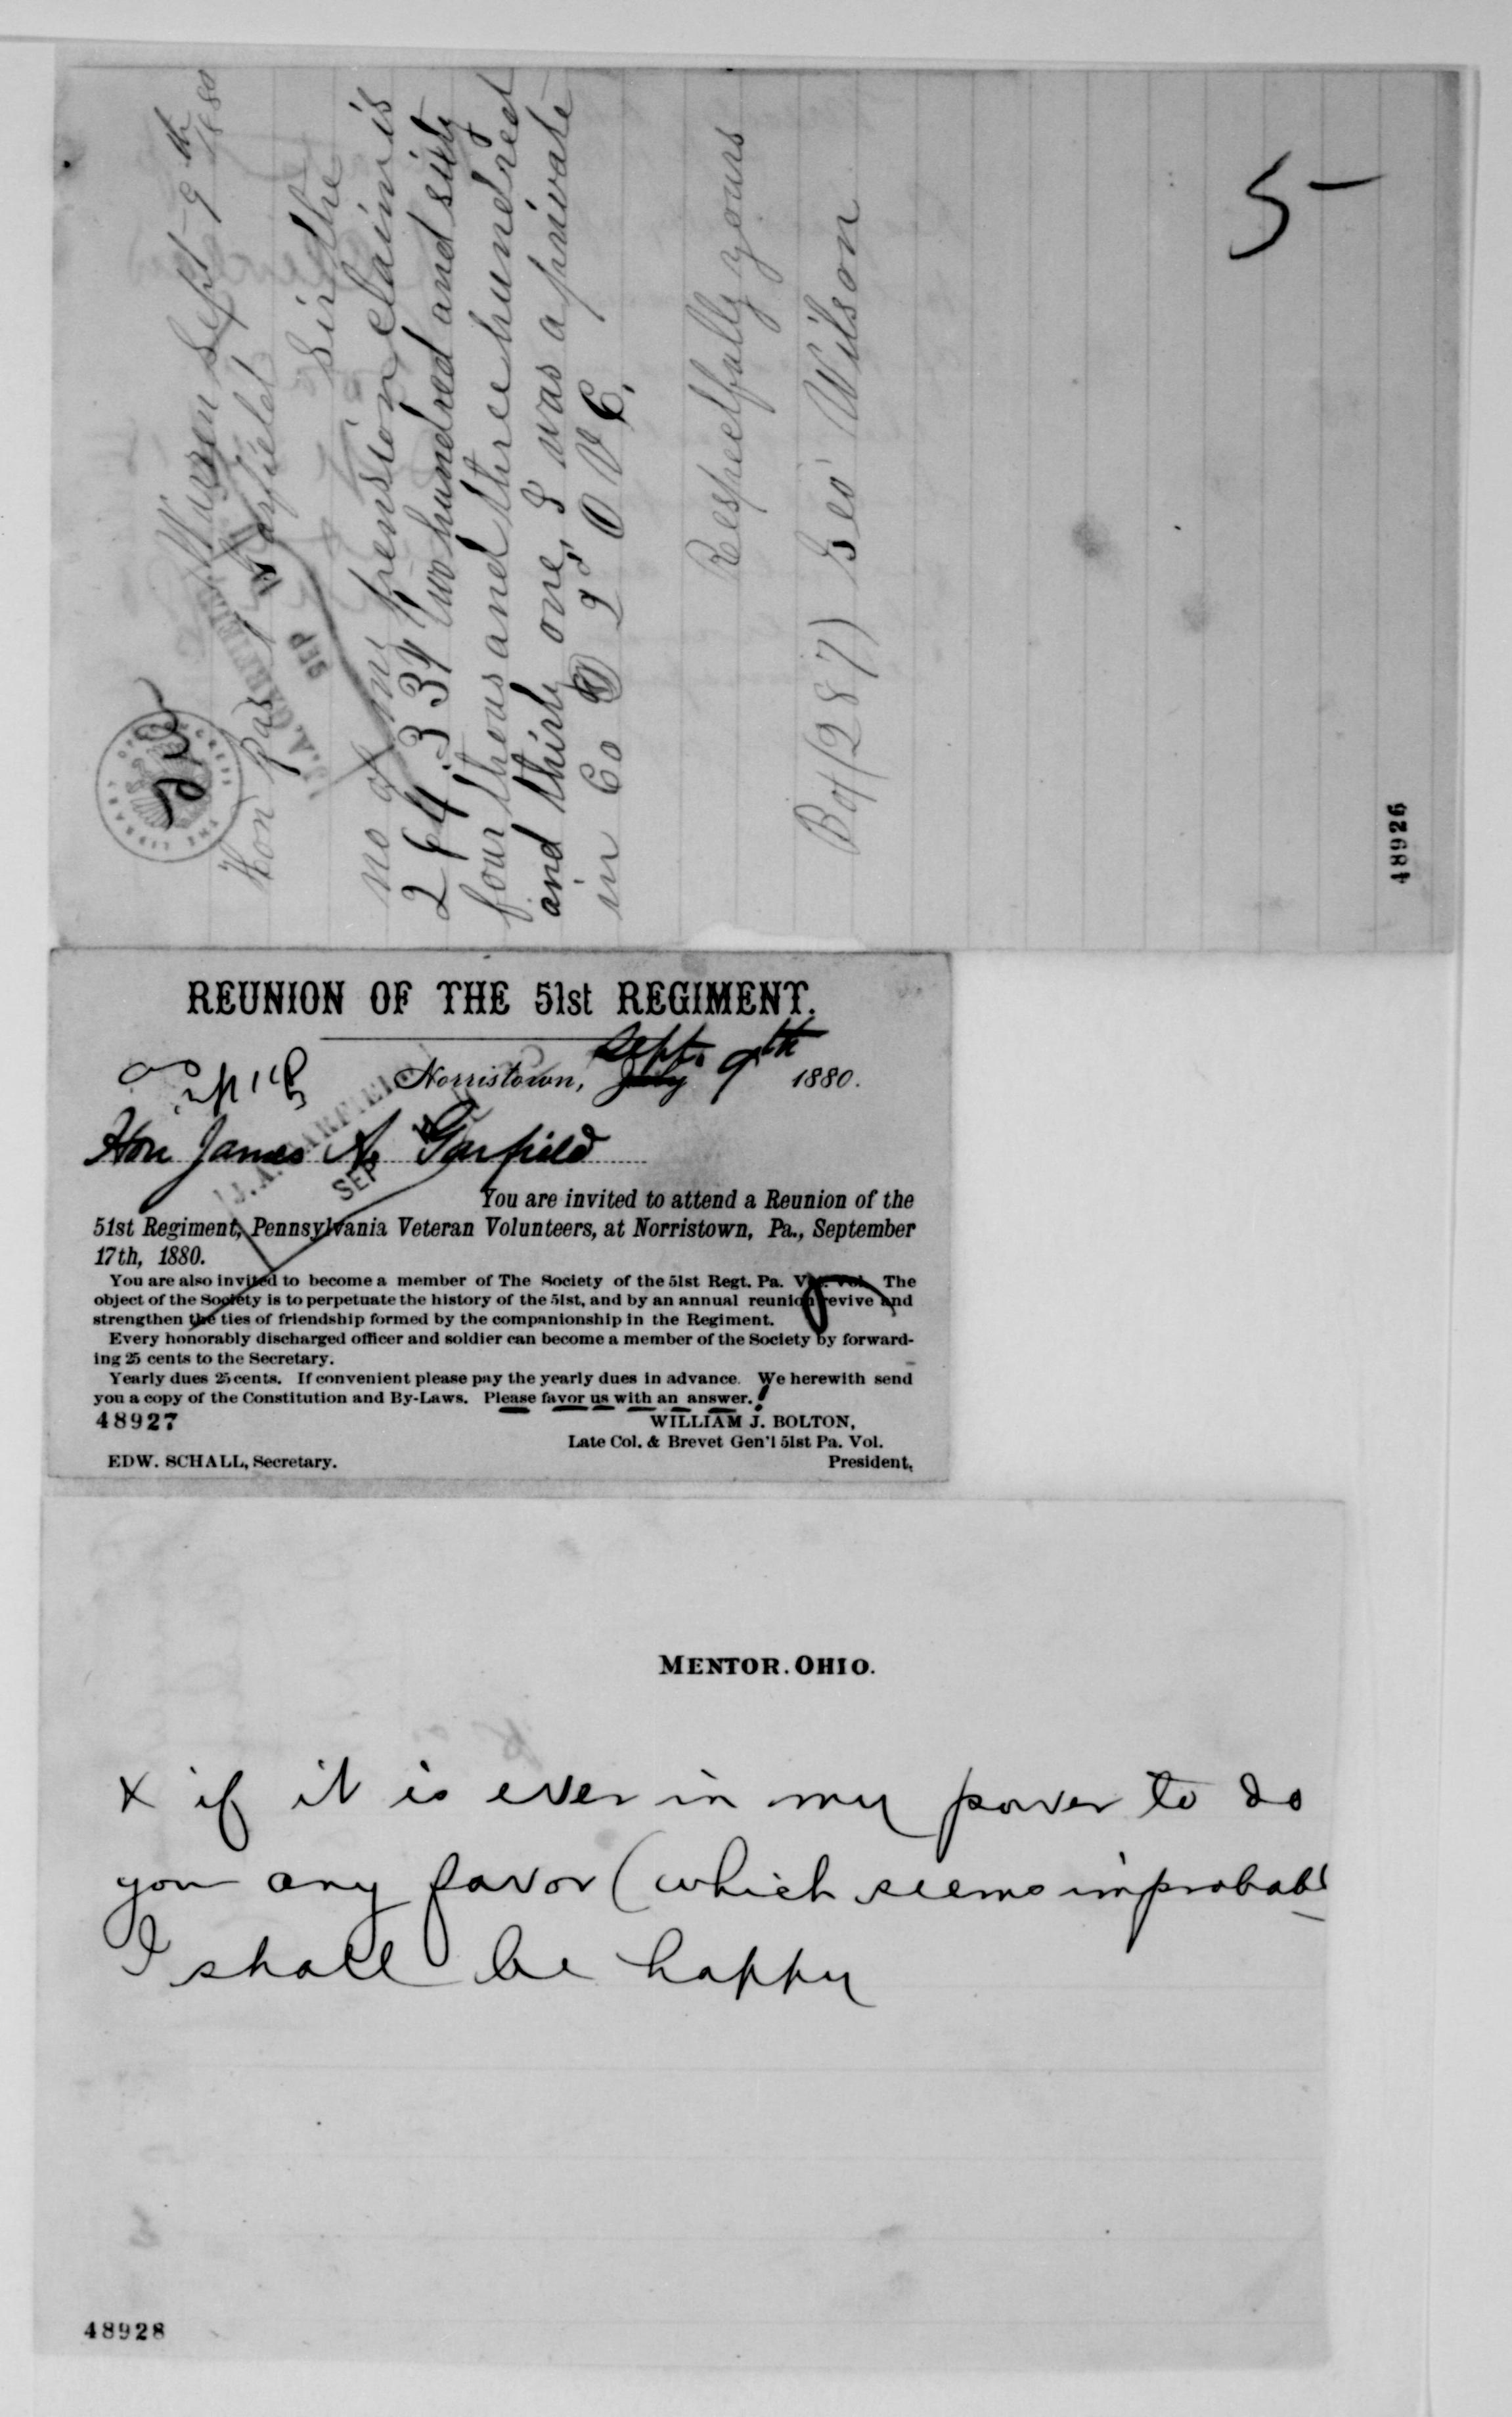 Warren Sept 9th
1880
Hon Jas A Garfield
Sir the
no of my pension claim is
264.334 two hundred and sixty
four thousand three hundred
and thirty one, I was a private
in Co D 2d O V C.
Respectfully yours
Box (287) Geo Wilson
5-
48926
REUNION OF THE 51st REGIMENT.
Norristown, July Sept. 9th 1880.
Hon James A. Garfield
J. A. GARFIELD
SEP
You are invited to attend a Reunion of the
51st Regiment, Pennsylvania Veteran Volunteers, at Norristown, Pa., September
17th, 1880.
You are also invited to become a member of The Society of the 51st Regt. Pa. Vet. Vol. The
object of the Society is to perpetuate the history of the 51st, and by an annual reunion revive and
strengthen the ties of friendship formed by the companionship in the Regiment.
Every honorably discharged officer and soldier can become a member of the Society by forward-
ing 25 cents to the Secretary.
Yearly dues 25 cents. If convenient please pay the yearly dues in advance. We herewith send
you a copy of the Constitution and By-Laws. Please favor us with an answer.
48927
WILLIAM J. BOLTON,
Late Col. & Brevet Gen'l 51st Pa. Vol.
EDW. SCHALL, Secretary. President,
MENTOR. OHIO.
x if it is ever in my power to do
you any favor (which seems improbabl
I shall be happy
48928